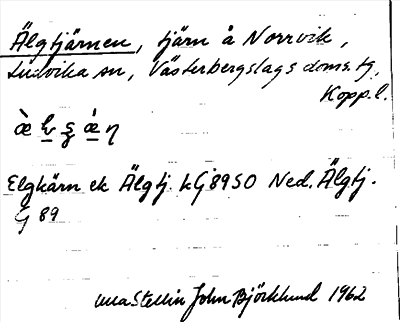 Älgtjärnen, tjärn å Norrvik,
Ludvika sn, Västerbergslags doms.tg,
Kopp.l.
Elgkärn ek Älgtj. LG 8950 Ned. Älgtj.
G 89
Ulla Stellin John Björklund 1962